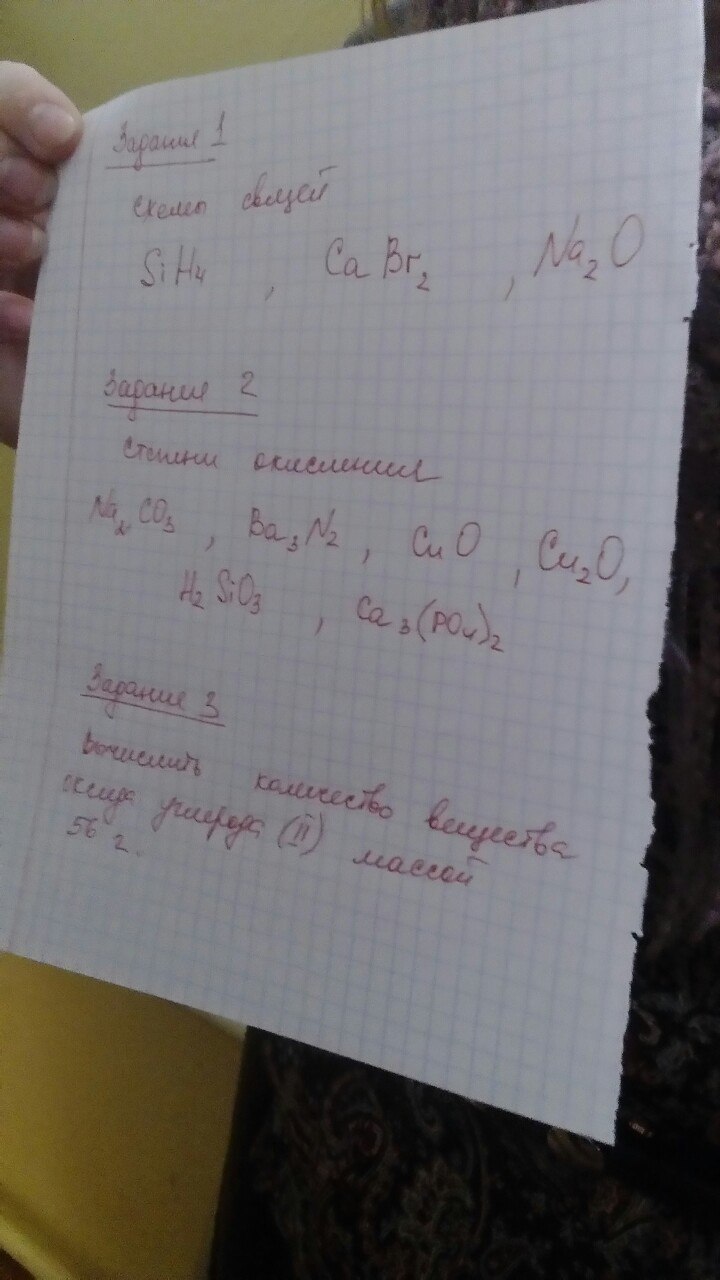 Задание 1
схемы связей
SiH4, CaBr2, Na2O
Задание 2
степени окисления
Na2CO3, Ba3N2, CuO, Cu2O,
H2SiO3, Ca3(PO4)2
Задание 3
Вычислить количество вещества
оксида углерода (II) массой
56 г.